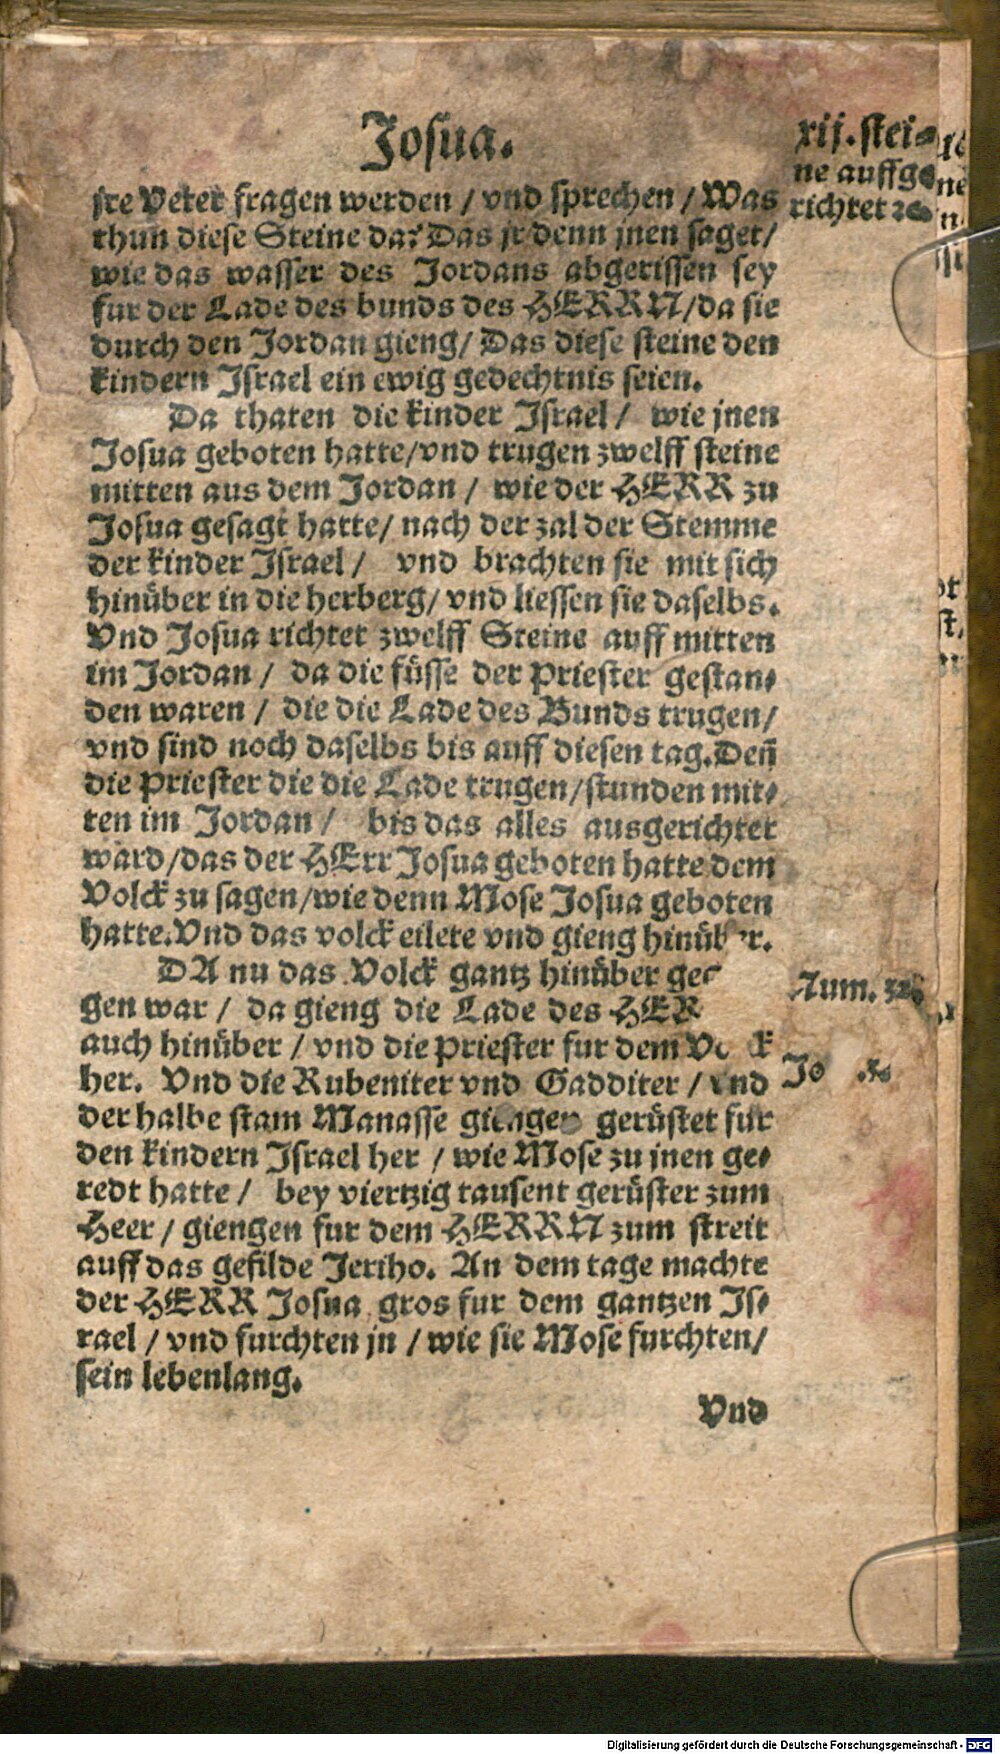 Josua.
jre Veter fragen werden / vnd sprechen / Was
thun diese Steine da? Das jr denn jnen saget/
wie das wasser des Jordans abgerissen sey
fur der Lade des bunds des HERRN/da sie
durch den Jordan gieng/ Das diese steine den
kindern Israel ein ewig gedechtnis seien.
Da thaten die kinder Israel / wie jnen
Josua geboten hatte/vnd trugen zwelff steine
mitten aus dem Jordan / wie der HERR zu
Josua gesagt hatte/ nach der zal der Stemme
der kinder Israel / vnd brachten sie mit sich
hinüber in die herberg/ vnd liessen sie daselbs.
Vnd Josua richtet zwelff Steine auff mitten
im Jordan / da die füsse der Priester gestan⸗
den waren / die die Lade des Bunds trugen/
vnd sind noch daselbs bis auff diesen tag. Deñ
die Priester die die Lade trugen/stunden mit⸗
ten im Jordan / bis das alles ausgerichtet
ward/das der HErr Josua geboten hatte dem
Volck zu sagen/wie denn Mose Josua geboten
hatte. Vnd das volck eilete vnd gieng hinüb er.
DA nu das Volck gantz hinüber geg
gen war / da gieng die Lade des HER
auch hinüber / vnd die Priester fur dem Vo k
her. Vnd die Rubeniter vnd Gadditer / vnd
der halbe stam Manasse giengen gerüstet fur
den kindern Israel her / wie Mose zu jnen ge⸗
redt hatte / bey viertzig tausent gerüster zum
Heer / giengen fur dem HERRN zum streit
auff das gefilde Jeriho. An dem tage machte
der HERR Josua gros fur dem gantzen Is⸗
rael / vnd furchten jn / wie sie Mose furchten/
sein lebenlang.
Vnd
xij. stei⸗
ne auffge
richtet
Num.
Jo
Digitalisierung gefördert durch die Deutsche Forschungsgemeinschaft - DFG